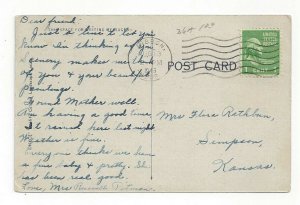 Dear friend:
Just a line to let you
know I'm thinking of you
Scenery makes me think
of you & your beautiful
paintings.
Found Mother well.
Am having a good time.
It rained here last night
Weather is fine.
Everyone thinks we have
a fine baby & pretty. She
has been real good.
Love, Mrs
SPACE FOR WRITING MESSAGES
POST CARD
Mrs Flora Rathbun,
Simpson,
Kansas.